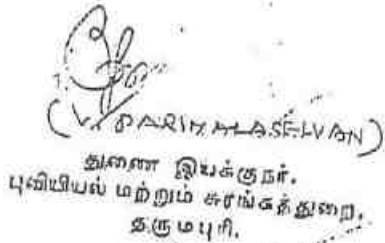 (V. PARIMALASELVAN)
துணை இயக்குநர்,
புவியியல் மற்றும் சுரங்கத்துறை,
தருமபுரி.